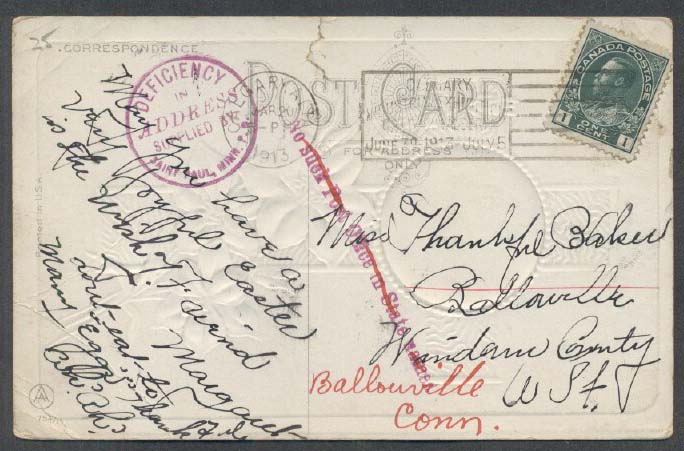 25
CORRESPONDENCE
POST CARD
FOR ADDRESS
ONLY
DEFICIENCY
IN
ADDRESS
SUPPLIED BY
SAINT PAUL, MINN. P.O.
CALGARY
1913
CALGARY
JUNE 30, 1913 JULY 5
CANADA POSTAGE
1 ONE CENT 1
No such Post Office in State named
May you have a
very joyful Easter
is the wish of friend
Margaret
dont eat to
Many Eggs, Thankful
Miss Thankful Baker
Ballouville
Windam County
W S t J
Ballouville
Conn.
Printed in U.S.A.
AA